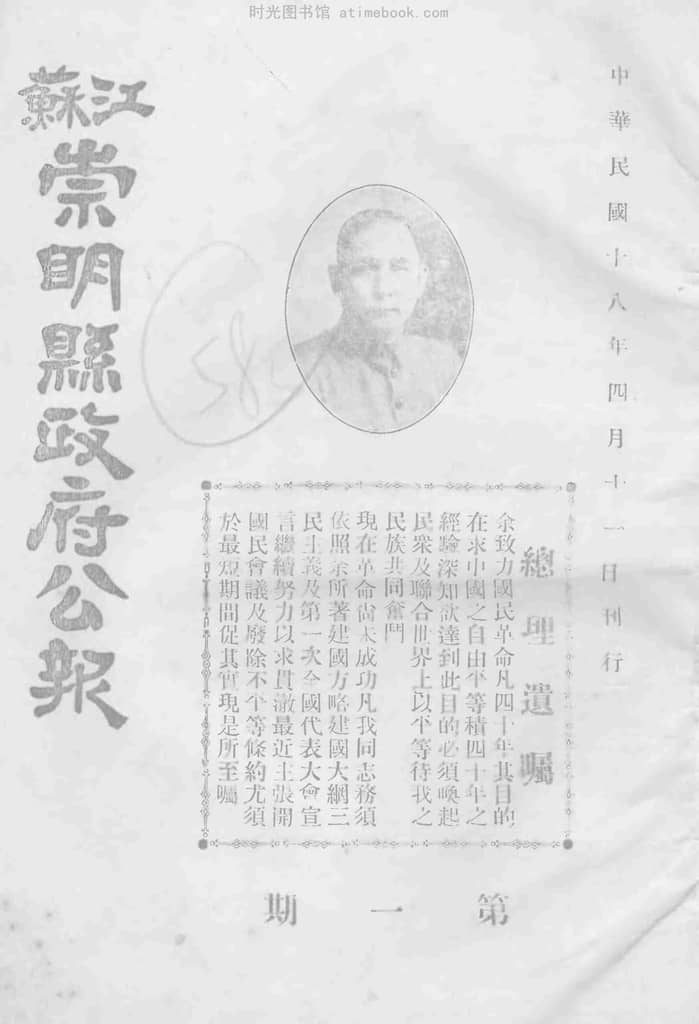 时光图书馆 atimebook.com
中華民國十八年四月十一日刊行
江蘇
崇明縣政府公報
585
總理遺囑
余致力國民革命凡四十年其目的
在求中國之自由平等積四十年之
經驗深知欲達到此目的必須喚起
民衆及聯合世界上以平等待我之
民族共同奮鬥
現在革命尚未成功凡我同志務須
依照余所著建國方略建國大綱三
民主義及第一次全國代表大會宣
言繼續努力以求貫澈最近主張開
國民會議及廢除不平等條約尤須
於最短期間促其實現是所至囑
第一期